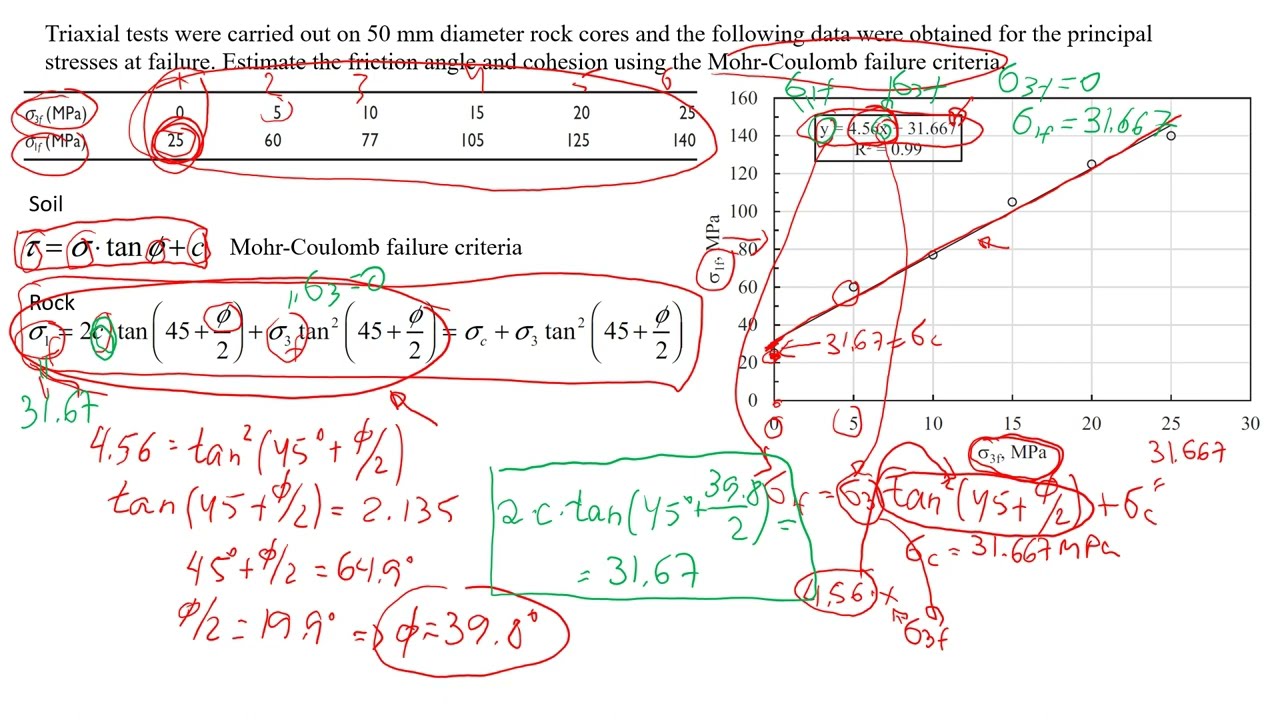 Triaxial tests were carried out on 50 mm diameter rock cores and the following data were obtained for the principal
stresses at failure. Estimate the friction angle and cohesion using the Mohr-Coulomb failure criteria.
1 2 3 4 5 6
σ3f (MPa) 0 5 10 15 20 25
σ1f (MPa) 25 60 77 105 125 140
Soil
τ = σ · tan ϕ + c Mohr-Coulomb failure criteria
σ3 = 0
Rock
σ1 = 2c tan (45 + ϕ/2) + σ3 tan² (45 + ϕ/2) = σc + σ3 tan² (45 + ϕ/2)
f
31.67
4.56 = tan²(45° + ϕ/2)
tan(45 + ϕ/2) = 2.135
45° + ϕ/2 = 64.9°
ϕ/2 = 19.9° ⇒ ϕ = 39.8°
2·c·tan(45° + 39.8/2) =
= 31.67
σ1f σ3f
σ3f = 0
σ1f = 31.667
y = 4.56x + 31.667
R² = 0.99
σ1f, MPa
160
140
120
100
80
60
40
20
0
31.67 = σc
0 5 10 15 20 25 30
σ3f, MPa
31.667
σ1f = σ3 tan²(45 + ϕ/2) + σc
σc = 31.667 MPa
4.56 · x
σ3f